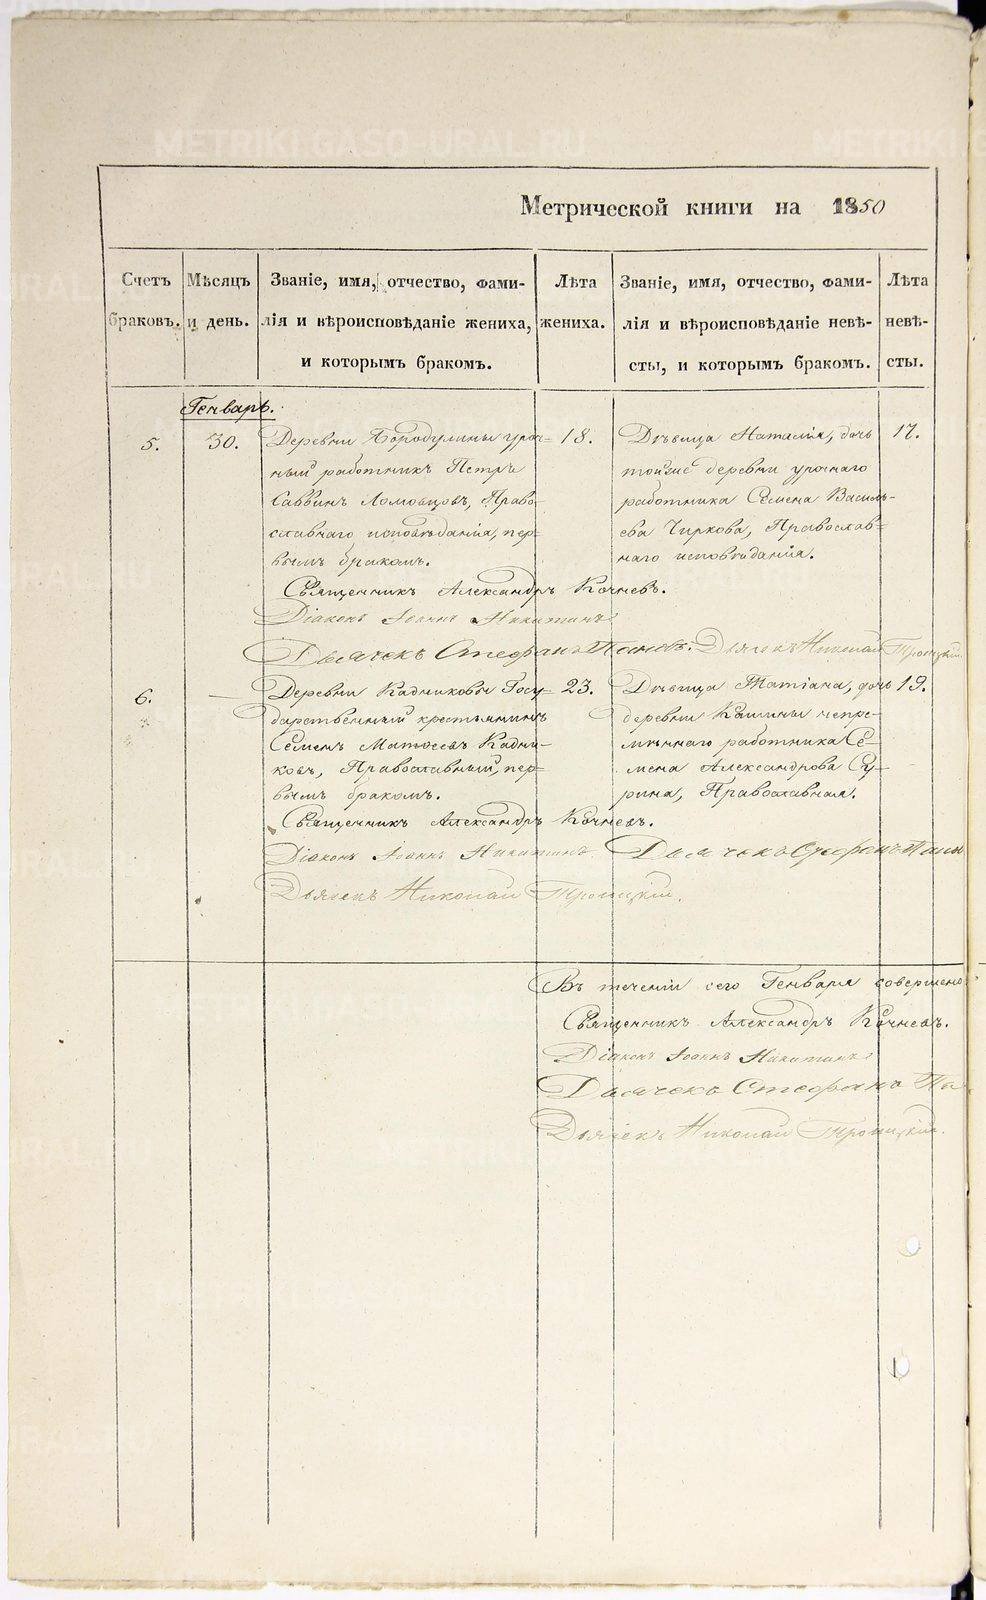 Метрической книги на 1850
Счетъ браковъ.
Мѣсяцъ и день.
Званіе, имя, отчество, фами-
лія и вѣроисповѣданіе жениха,
и которымъ бракомъ.
Лѣта жениха.
Званіе, имя, отчество, фами-
лія и вѣроисповѣданіе невѣ-
сты, и которымъ бракомъ.
Лѣта невѣ-
сты.
Генварь.
5.
30.
Деревни Бородулины уроч-
ный работникъ Петръ
Саввинъ Ломовцовъ, Право-
славнаго исповѣданія, пер-
вымъ бракомъ.
18.
Дѣвица Наталія, дочь
тойже деревни урочнаго
работника Семена Василь-
ева Чиркова, Православ-
наго исповѣданія.
17.
Священникъ Александръ Кочневъ.
Діаконъ Іоаннъ Никитинъ
Дьячекъ Стефанъ Пановъ. Дьячекъ Николай Троицкій
6.
—
Деревни Кадниковы Госу-
дарственный крестьянинъ
Семенъ Матѳеевъ Кадни-
ковъ, Православный, пер-
вымъ бракомъ.
23.
Дѣвица Татіана, дочь
деревни Кашины непре-
мѣннаго работника Се-
мена Александрова Су-
рина, Православная.
19.
Священникъ Александръ Кочневъ.
Діаконъ Іоаннъ Никитинъ Дьячекъ Стефанъ Пано
Дьячекъ Николай Троицкій.
Въ теченіи сего Генваря совершено
Священникъ Александръ Кочневъ.
Діаконъ Іоаннъ Никитинъ
Дьячекъ Стефанъ Па
Дьячекъ Николай Троицкій.
METRIKI.GASO-URAL.RU